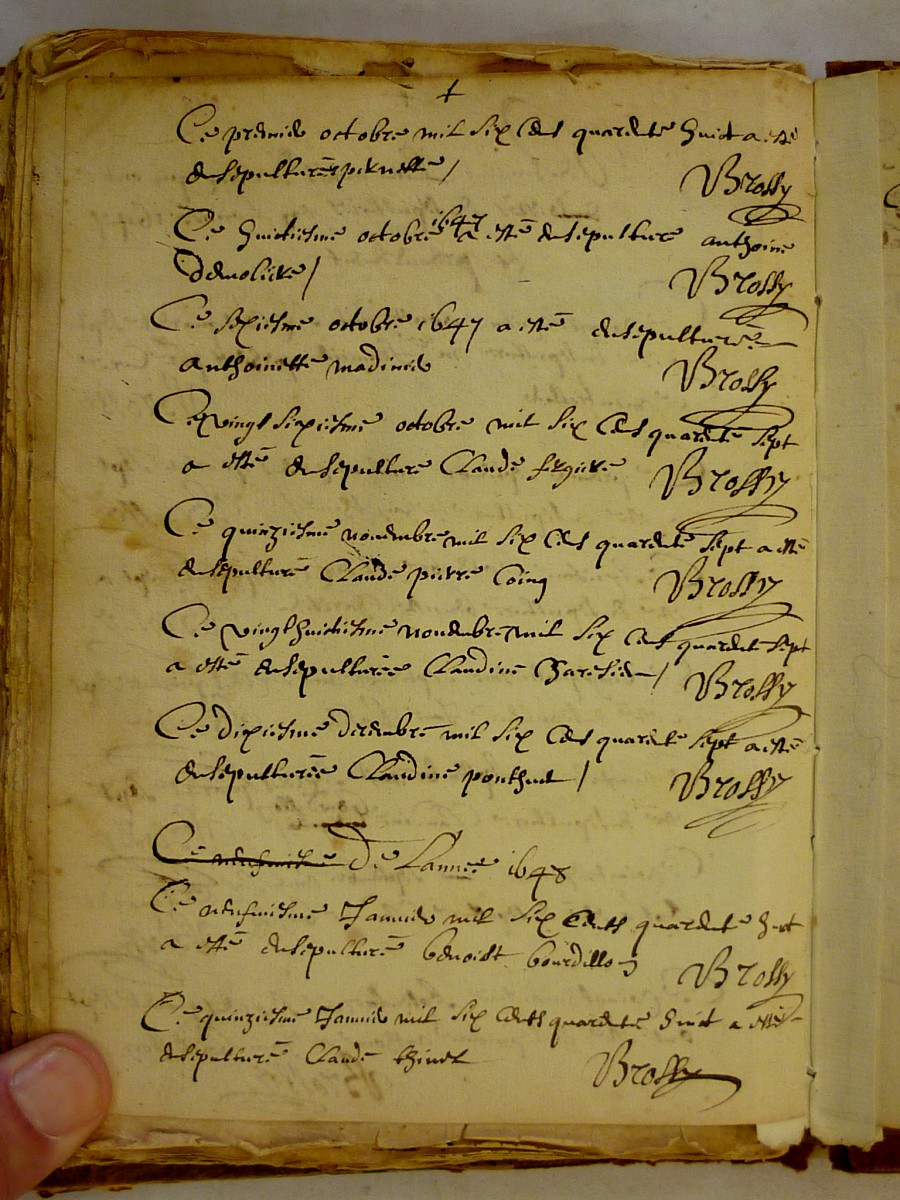 +
Ce premier octobre mil six cens quarente huict a esté
ensepulturer pernette /
Brossy
Ce huictiesme octobre 1647 a esté ensepulturé anthoine
Brossy
Ce sixiesme octobre 1647 a esté ensepulturée
anthoinette madinier
Brossy
Ce vingt sixiesme octobre mil six cens quarente sept
a esté ensepulturé Claude
Brossy
Ce quinziesme novembre mil six cens quarente sept a esté
ensepulturé Claude pierre Coing
Brossy
Ce vingt huictiesme novembre mil six cens quarente sept
a esté ensepulturée Claudine /
Brossy
Ce dixiesme decembre mil six cens quarente sept a esté
ensepulturée Claudine ponthus /
Brossy
Ce neufviesme De L'année 1648
Ce neufviesme Janvier mil six cents quarente huit
a esté ensepulturé benoist bourdillon
Brossy
Ce quinziesme Janvier mil six cents quarente huict a esté
ensepulturé Claude thinet
Brossy